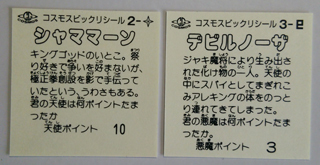 コスモスビックリシール 2-
シャママーン
キングゴッドのいとこ。祭
り好きで争いを好まないが、
極正拳創設を影で手伝って
いたという、うわさもある。
君の天使は何ポイントたま
ったか
天使ポイント 10
コスモスビックリシール 3-
デビルノーザ
ジャキ魔将により生み出さ
れた化け物の一人。天使の
中にスパイとしてまぎれこ
みアレキングの体をのっと
り連れてきてしまった。
君の悪魔は何ポイントたま
ったか
悪魔ポイント 3